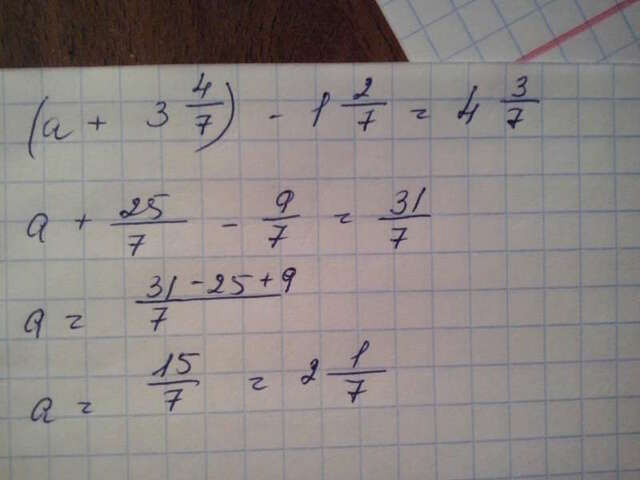 (a + 3 4/7) - 1 2/7 = 4 3/7
a + 25/7 - 9/7 = 31/7
a = 31-25+9/7
a = 15/7 = 2 1/7